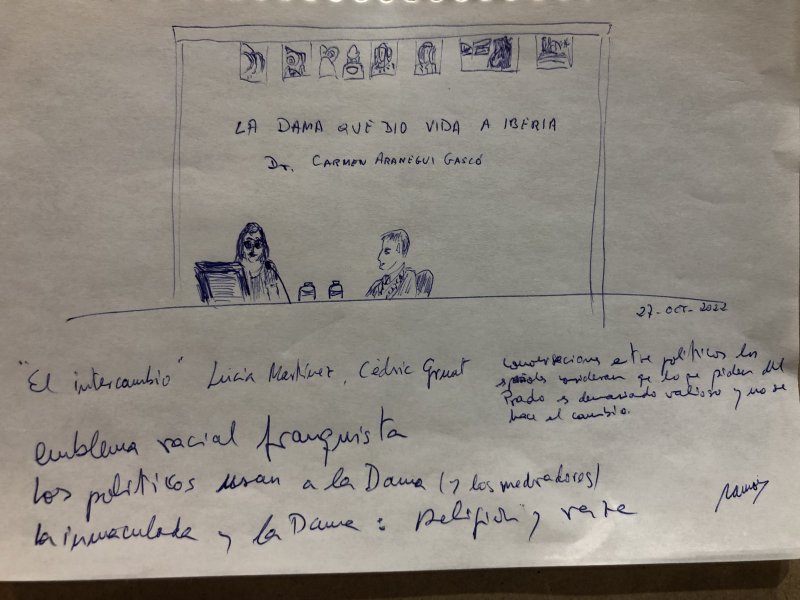 LA DAMA QUE DIO VIDA A IBERIA
Dr. CARMEN ARANEGUI GASCÓ
27-OCT-2022
"El intercambio" Lucía Martínez, Cédric Gruat
conversaciones entre politicos los
consideran que lo que piden del
Prado es demasiado valioso y no se
hace el cambio.
emblema racial franquista
Los politicos usan a la Dama (y los mediadores)
La inmaculada y la Dama: Religión y
Ramón